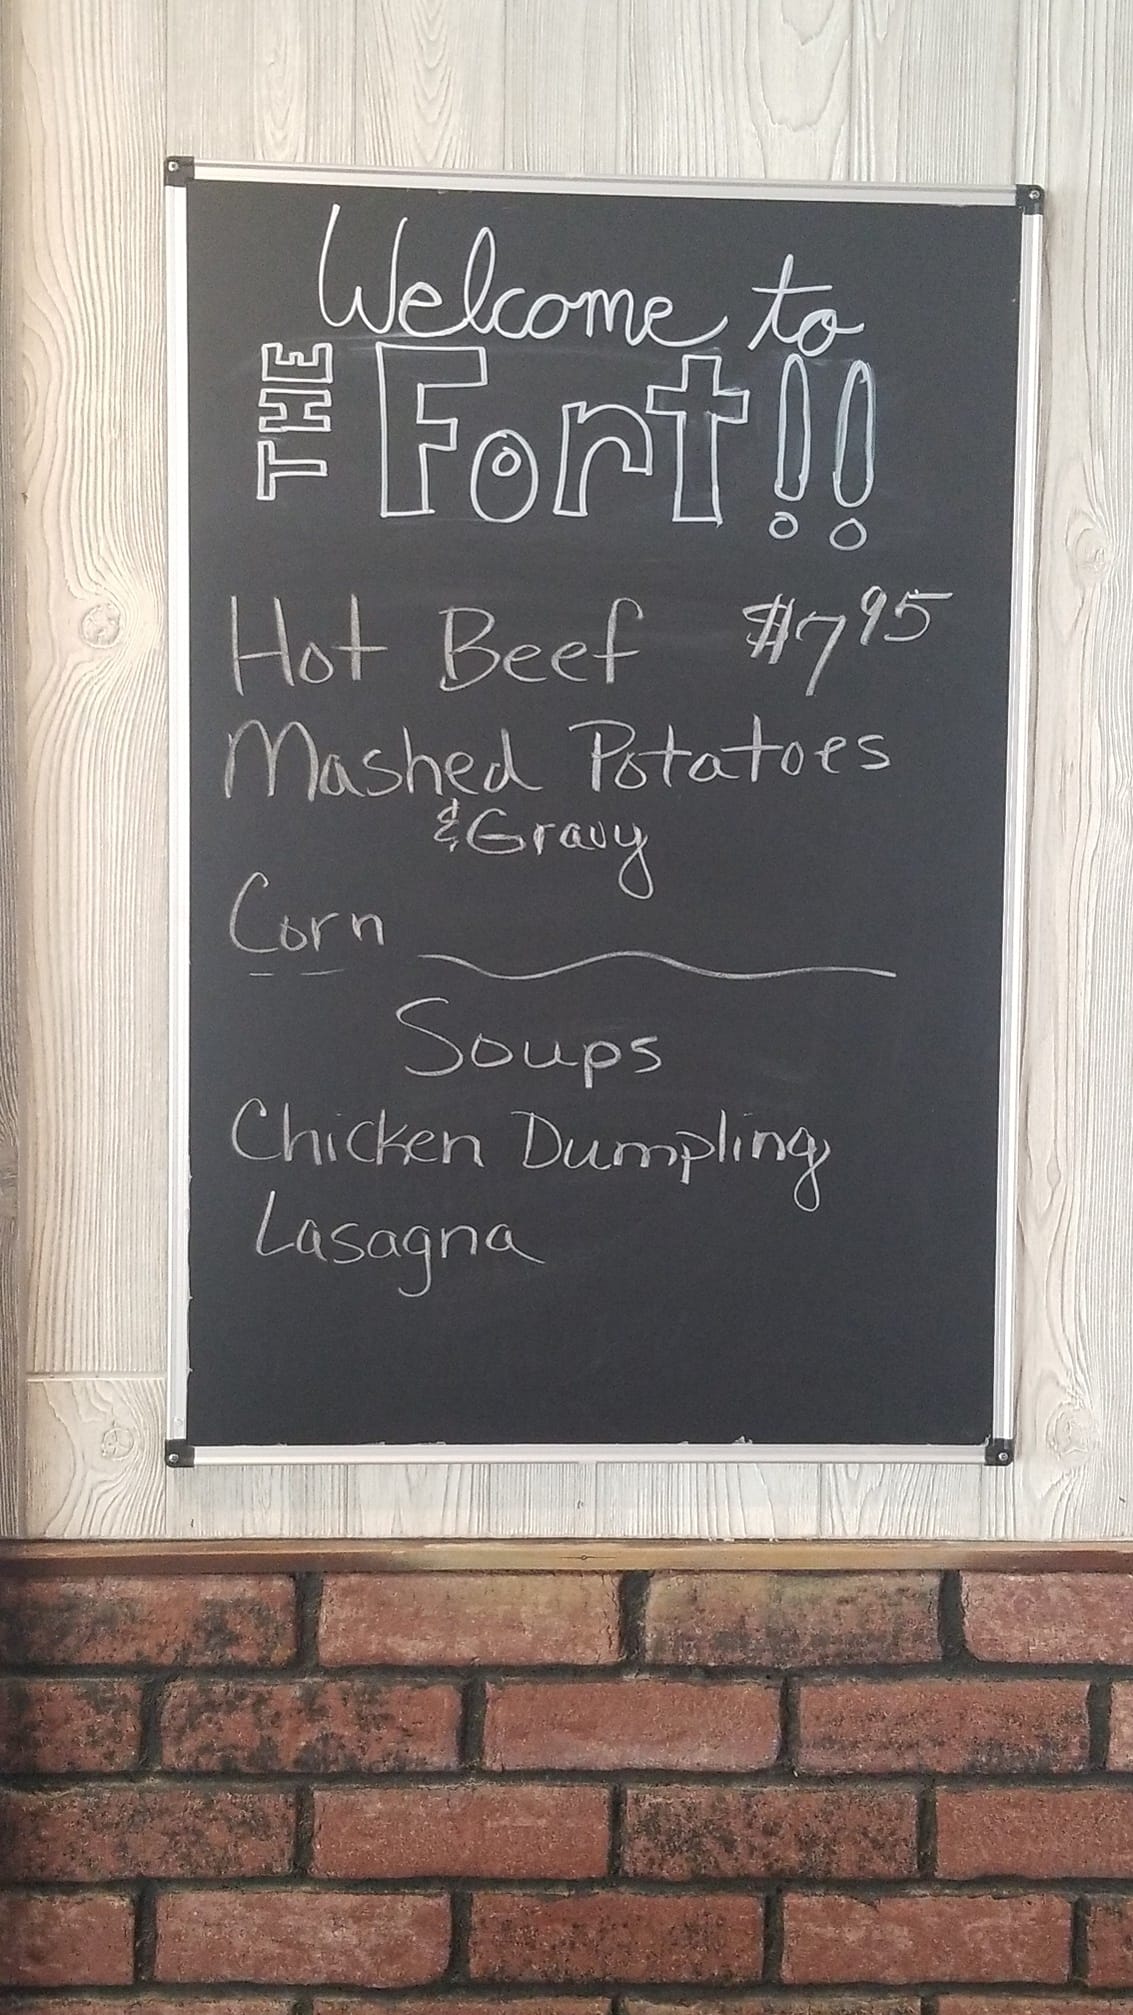 Welcome to
THE Fort!!
Hot Beef $7.95
Mashed Potatoes
& Gravy
Corn
Soups
Chicken Dumpling
Lasagna